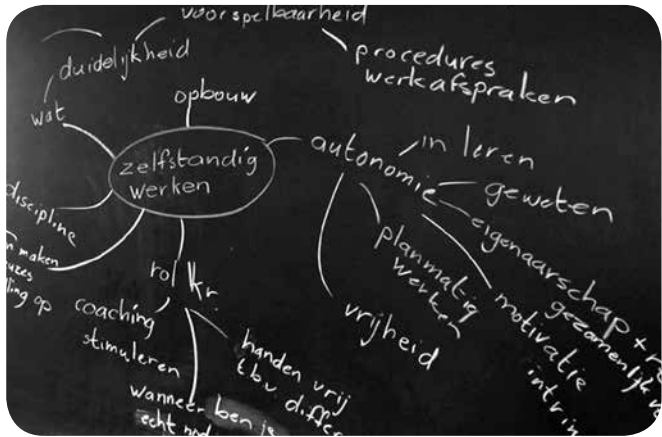 voorspelbaarheid
duidelijkheid
procedures
werkafspraken
wat
opbouw
zelfstandig
werken
autonomie
in leren
geweten
eigenaarschap +
gezamenlijk
motivatie
intrin
planmatig
werken
vrijheid
discipline
maken
ling op
rol kr.
coaching
stimuleren
handen vrij
t.b.v. differ
wanneer ben je
echt nod